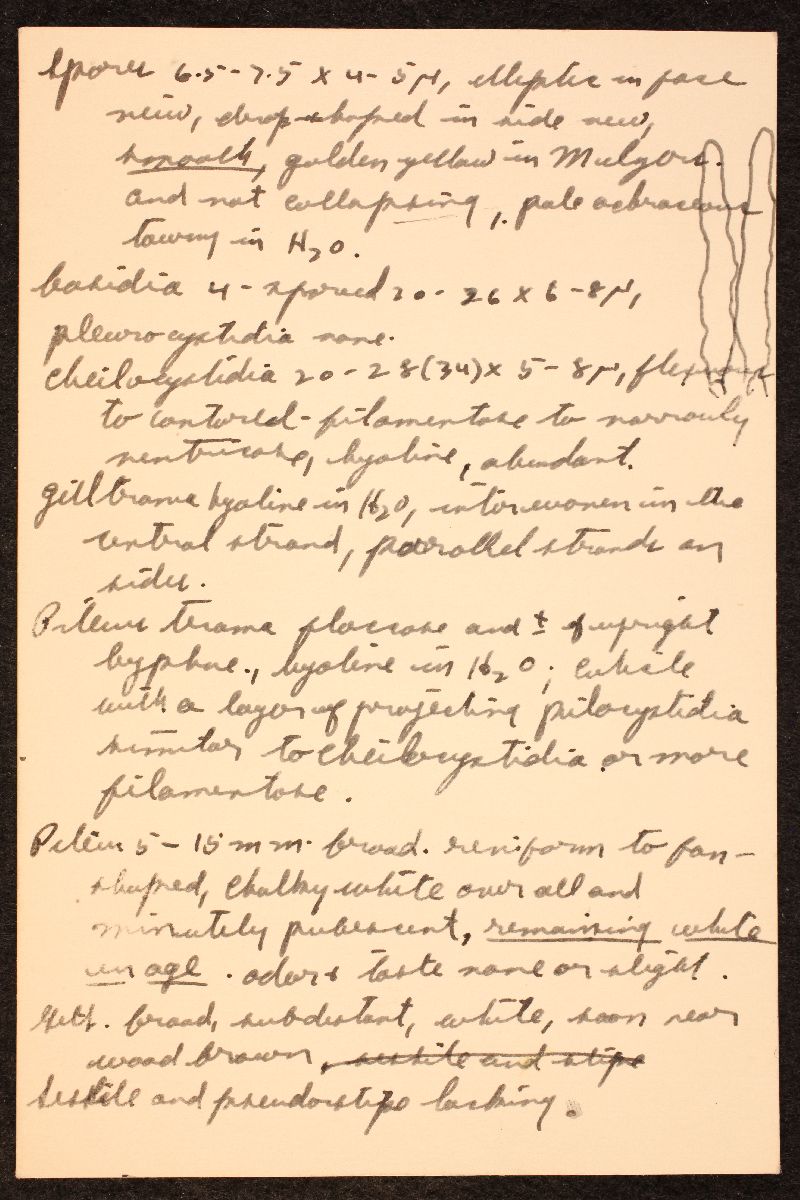 Spores 6.5-7.5 x 4-5 μ, elliptic in face
view, drop-shaped in side view,
smooth, golden yellow in Melzers.
and not collapsing, pale ochraceous
tawny in H2O.
basidia 4-spored 20-26 x 6-8 μ,
pleurocystidia none.
cheilocystidia 20-28(34) x 5-8 μ, flexuous
to contored-filamentose to narrowly
ventricose, hyaline, abundant.
gill trama hyaline in H2O, interwoven in the
central strand, parallel strands on
sides.
Pileus trama floccose and ± of upright
hyphae., hyaline in H2O; cuticle
with a layer of projecting pilocystidia
similar to cheilocystidia or more
filamentose.
Pileus 5-15 mm. broad. reniform to fan-
shaped, chalky white over all and
minutely pubescent, remaining white
in age. odor & taste none or slight.
Gills. broad, subdistant, white, soon near
wood brown, sessile and stipe
Sessile and pseudostipe lacking.